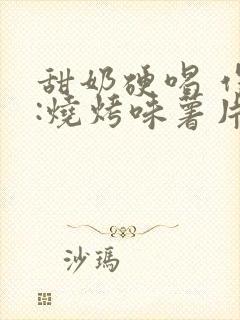 甜奶硬喝
:燒烤味薯片
沙瑪